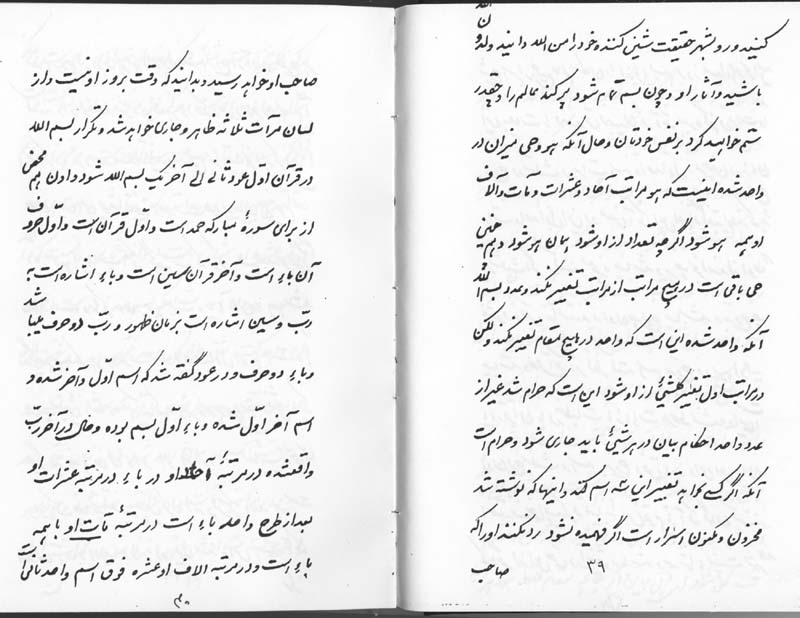 کنید و رو بشهر حقیقت شیئی کننده خود را من الله دانید و
باشید و آثار او و چون بسم تمام شود پر کند عالم را و چقدر
ستم خواهید کرد بر نفس خودتان و حال آنکه هو و حی میزان در
واحد شده اینست که هو مراتب آحاد و عشرات و مآت و الاف
او همه هو شود اگر چه تعداد از او شود همان هو شود و همچنین
حی باقی است در هیچ مراتب از مراتب تغییر نکند و عدد بسم الله
آنکه واحد شده این است که واحد در هیچ مقام تغییر نکند ولکن
در مراتب اول تغییر کلشیء از او شود این است که حرام شد غیر از
عدد واحد احکام بیان در هر شیئی باید جاری شود و حرام است
آنکه اگر کسی بخواهد تغییر این سه اسم کند و اینها که نوشته شد
مخزون و مکنون اسرار است اگر فهمیده نشود رد نکنند او را که
۳۹ صاحب
صاحب او خواهد رسید و بدانید که وقت بروز او نیست و از
لسان مرآت ثلاثه ظاهر و جاری خواهد شد و تکرار بسم الله
در قرآن اول عود تا لی الی آخر یک بسم الله شود و اون هم محض
از برای سورهٔ مبارکه حمد است و اول قرآن است و اول حروف
آن باء است و آخر قرآن سین است و باء اشاره است به
رب و سین اشاره است بزمان ظهور و رب دو حرف میباشد
و باء دو حرف و در عود گفته شد که اسم اول و آخر شده و
اسم آخر اول شده و باء اول بسم بوده و حال در آخر رب
واقعشده در مرتبهٔ آحاد او در باء در مرتبهٔ عشرات او
بعد از طرح واحد باء است در مرتبهٔ مآت او با همه
باء است و در مرتبه الاف او عشره فوق اسم واحد ثانی است
۴۰